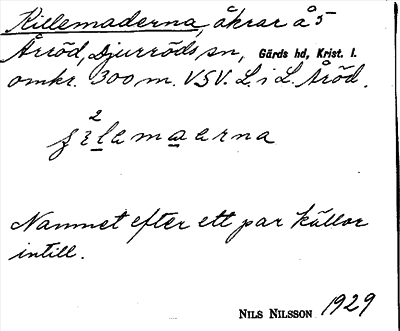 Killemaderna, åkrar å 5
Årröd, Djurröds sn, Gärds hd, Krist. l.
omkr. 300 m. VSV. L. i L. Åröd.
2
Namnet efter ett par källor
intill.
NILS NILSSON 1929